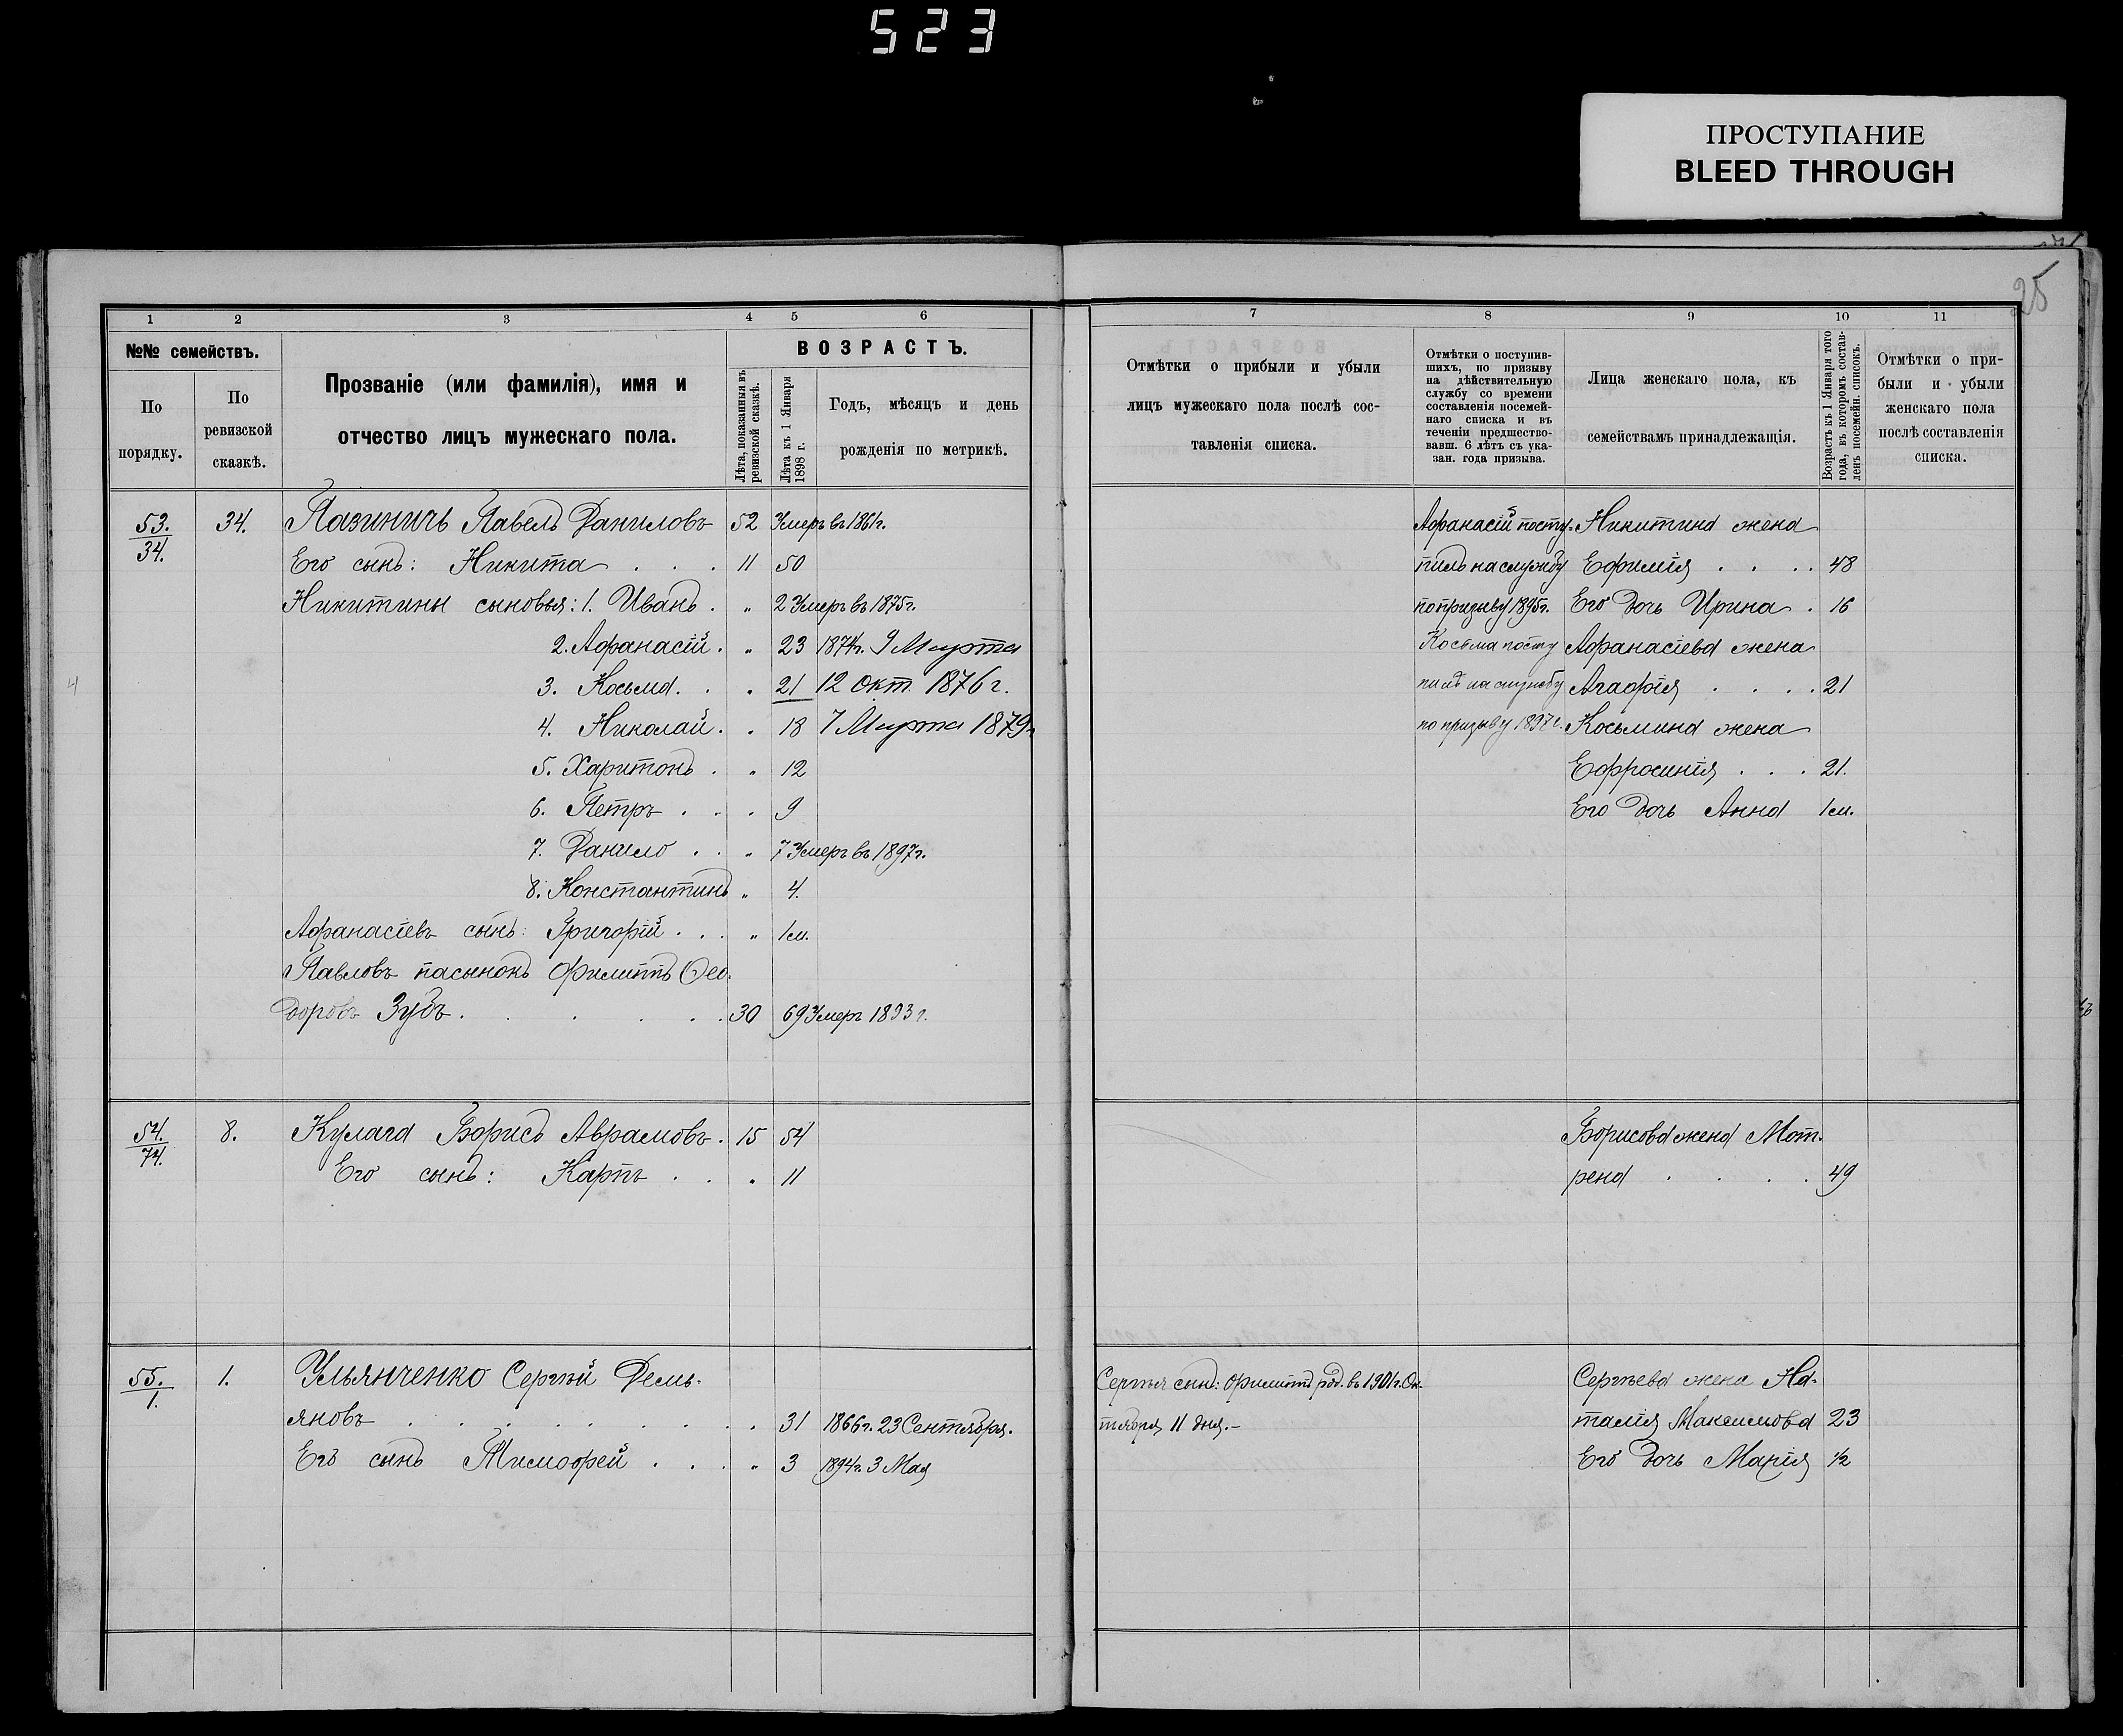 523
ПРОСТУПАНИЕ
BLEED THROUGH
25
1 2 3 4 5 6
№№ семействъ.
По порядку.
По ревизской сказкѣ.
Прозваніе (или фамилія), имя и
отчество лицъ мужескаго пола.
ВОЗРАСТЪ.
Лѣта, показанныя въ ревизской сказкѣ.
Лѣта къ 1 Января 1898 г.
Годъ, мѣсяцъ и день
рожденія по метрикѣ.
53./34. 34. Пазиничъ Павелъ Даниловъ 52 Умеръ въ 1861г.
Его сынъ: Никита . . . 11 50
Никитины сыновья: 1. Иванъ . „ 2 Умеръ въ 1875г.
2. Афанасій . „ 23 1874г. 9 Марта
3. Косьма . . „ 21 12 окт. 1876 г.
4. Николай . . 18 7 Марта 1879г
5. Харитонъ . „ 12
6. Петръ . . . 9
7. Данило . . „ 7 Умеръ въ 1897г.
8. Константинъ „ 4.
Афанасіевъ сынъ: Григорій . . . „ 1м.
Павловъ пасынокъ Филиппъ Ѳео-
доровъ Зубъ . . . . . 30 69 Умеръ 1893 г.
54./74. 8. Кулага Борисъ Аврамовъ . 15 54
Его сынъ: Карпъ . . „ 11
55./1. 1. Ульянченко Сергѣй Демь-
яновъ . . . . . . . . 31 1866г. 23 Сентября.
Его сынъ Тимофей . . . „ 3 1894г. 3 Мая
7 8 9 10 11
Отмѣтки о прибыли и убыли
лицъ мужескаго пола послѣ сос-
тавленія списка.
Отмѣтки о поступив-
шихъ, по призыву
на дѣйствительную
службу со времени
составленія посемей-
наго списка и въ
теченіи предшество-
вавш. 6 лѣтъ съ ука-
зан. года призыва.
Лица женскаго пола, къ
семействамъ принадлежащія.
Возрастъ къ 1 Января того
года, въ которомъ состав-
ленъ посемейн. списокъ.
Отмѣтки о при-
были и убыли
женскаго пола
послѣ составленія
списка.
Афанасій посту- Никитина жена
пилъ на службу Ефимія . . . . 48
по призыву 1895г. Его дочь Ирина . 16
Косьма посту Афанасіева жена
пилъ на службу Агафія . . . . 21
по призыву 1897г. Косьмина жена
Ефросинія . . . 21.
Его дочь Анна 1м.
Борисова жена Мот-
рена . . . . 49
Сергѣя сынъ: Филиппъ род. въ 1901г. Ок- Сергѣева жена На-
тября 11 дня.– талія Максимова 23
Его дочь Марія ½